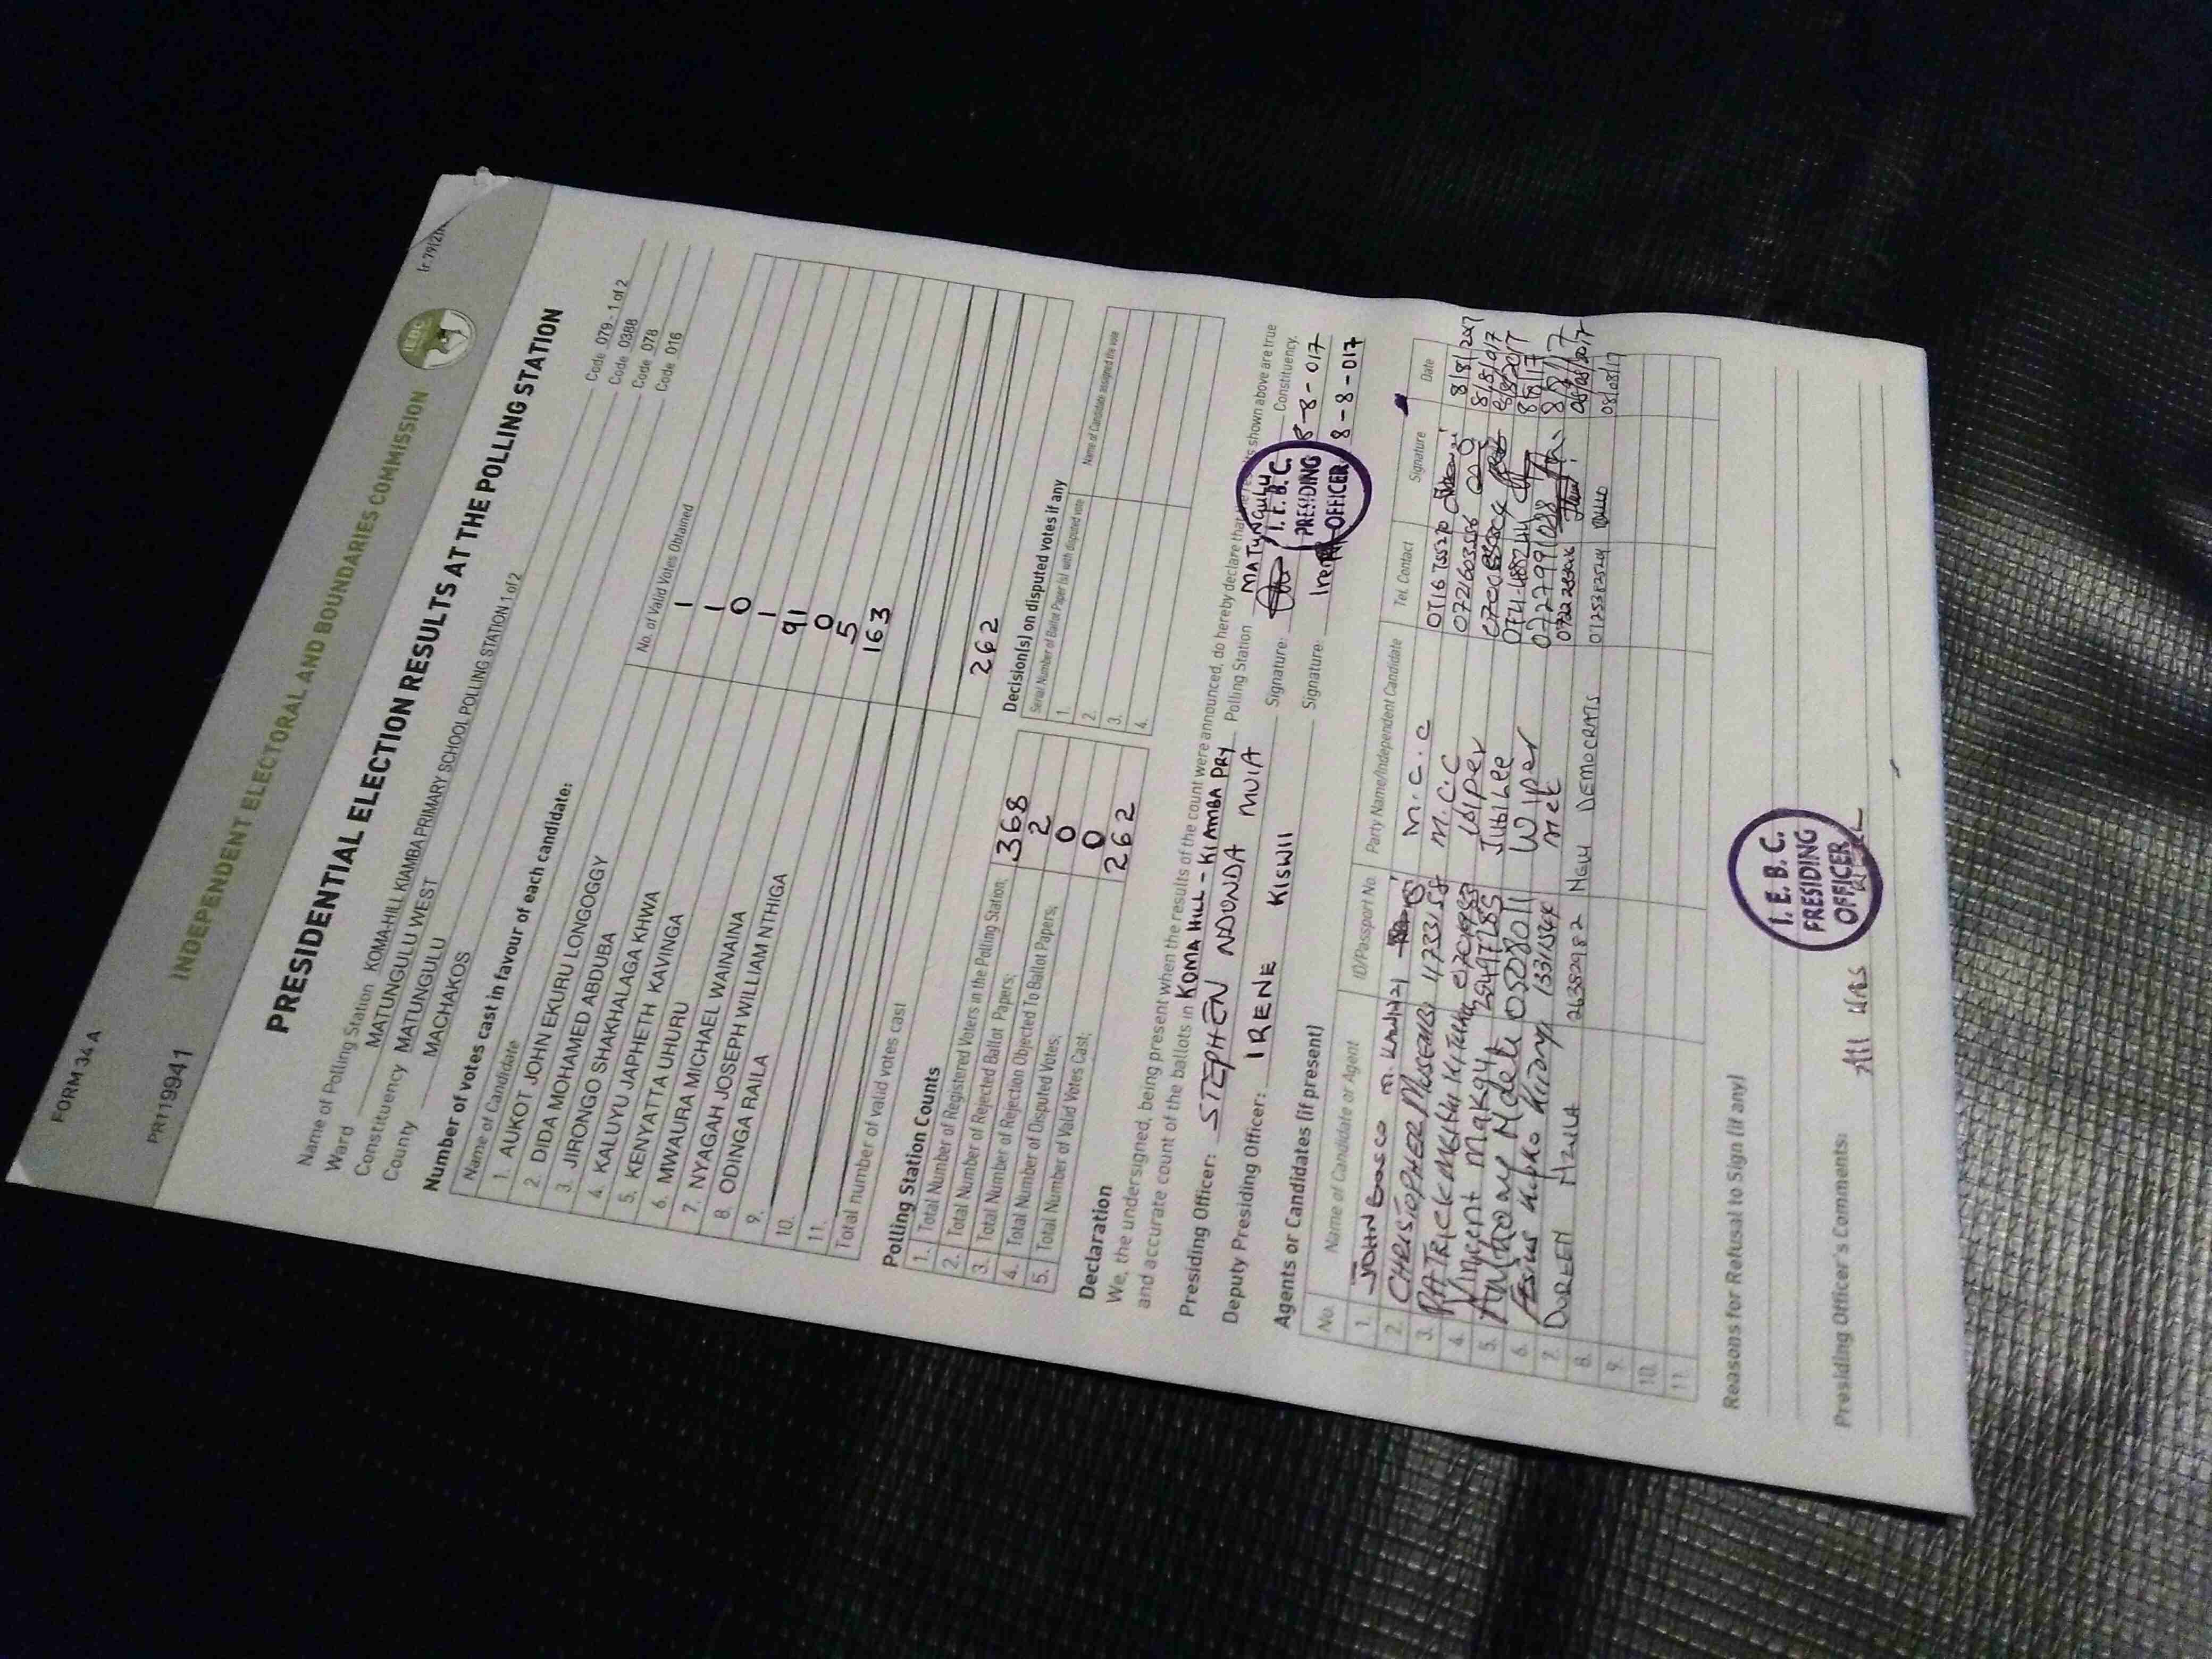 FORM 34 A
PRT19941
INDEPENDENT ELECTORAL AND BOUNDARIES COMMISSION
IEBC
PRESIDENTIAL ELECTION RESULTS AT THE POLLING STATION
Name of Polling Station KOMA-HILL KIAMBA PRIMARY SCHOOL POLLING STATION 1 of 2 Code 079 - 1 of 2
Ward MATUNGULU WEST Code 0388
Constituency MATUNGULU Code 078
County MACHAKOS Code 016
Number of votes cast in favour of each candidate:
Name of Candidate No. of Valid Votes Obtained
1. AUKOT JOHN EKURU LONGOGGY 1
2. DIDA MOHAMED ABDUBA 1
3. JIRONGO SHAKHALAGA KHWA 0
4. KALUYU JAPHETH KAVINGA 1
5. KENYATTA UHURU 91
6. MWAURA MICHAEL WAINAINA 0
7. NYAGAH JOSEPH WILLIAM NTHIGA 5
8. ODINGA RAILA 163
9.
10.
11.
Total number of valid votes cast 262
Polling Station Counts
1. Total Number of Registered Voters in the Polling Station; 368
2. Total Number of Rejected Ballot Papers; 2
3. Total Number of Rejection Objected To Ballot Papers; 0
4. Total Number of Disputed Votes; 0
5. Total Number of Valid Votes Cast; 262
Decision(s) on disputed votes if any
Serial Number of Ballot Paper (s) with disputed vote Name of Candidate assigned the vote
1.
2.
3.
4.
Declaration
We, the undersigned, being present when the results of the count were announced, do hereby declare that the results shown above are true
and accurate count of the ballots in KOMA HILL - KIAMBA PRY Polling Station MATUNGULU Constituency.
Presiding Officer: STEPHEN NDONDA MUIA Signature: 8-8-017
Deputy Presiding Officer: IRENE KISWII Signature: 8-8-017
I.E.B.C.
PRESIDING
OFFICER
Agents or Candidates (if present)
No. Name of Candidate or Agent ID/Passport No. Party Name/Independent Candidate Tel. Contact Signature Date
1. JOHN BOSCO M. M.C.C 8/8/2017
2. CHRISTOPHER MUSEMBI 11733158 M.C.C 8/8/017
3. PATRICK Wiper 8/8/2017
4. Vincent Jubilee 8/8/17
5. Antony Ndeti Wiper 0727991088 8/8/17
6. 08/08/2017
7. DOREEN 26382982 NEW DEMOCRATS 08/08/17
8.
9.
10.
11.
Reasons for Refusal to Sign (if any)
Presiding Officer's Comments: All was
I.E.B.C.
PRESIDING
OFFICER